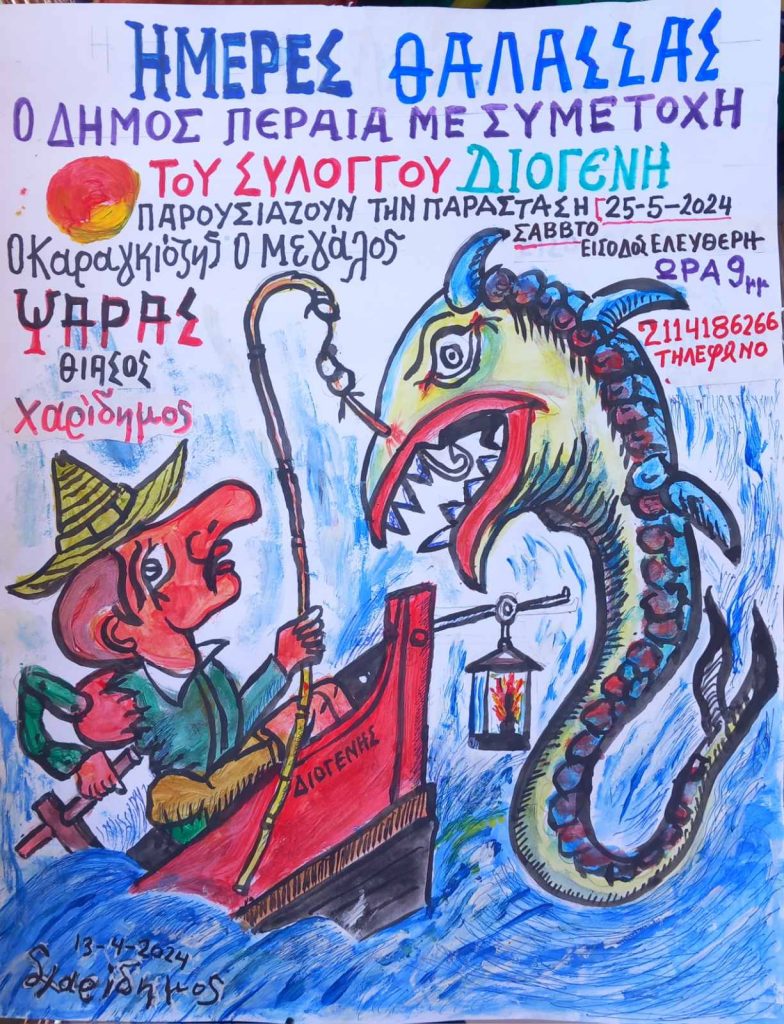 ΗΜΕΡΕΣ ΘΑΛΑΣΣΑΣ
Ο ΔΗΜΟΣ ΠΕΡΑΙΑ ΜΕ ΣΥΜΕΤΟΧΗ
ΤΟΥ ΣΥΛΟΓΓΟΥ ΔΙΟΓΕΝΗ
ΠΑΡΟΥΣΙΑΖΟΥΝ ΤΗΝ ΠΑΡΑΣΤΑΣΗ 25-5-2024
ΣΑΒΒΤΟ
ΕΙΣΟΔΟΣ ΕΛΕΥΘΕΡΗ
Ο Καραγκιόζης Ο Μεγάλος
ΩΡΑ 9μμ
ΨΑΡΑΣ
2114186266
ΤΗΛΕΦΩΝΟ
ΘΙΑΣΟΣ
Χαρίδημος
ΔΙΟΓΕΝΗΣ
13-4-2024
Χαρίδημος